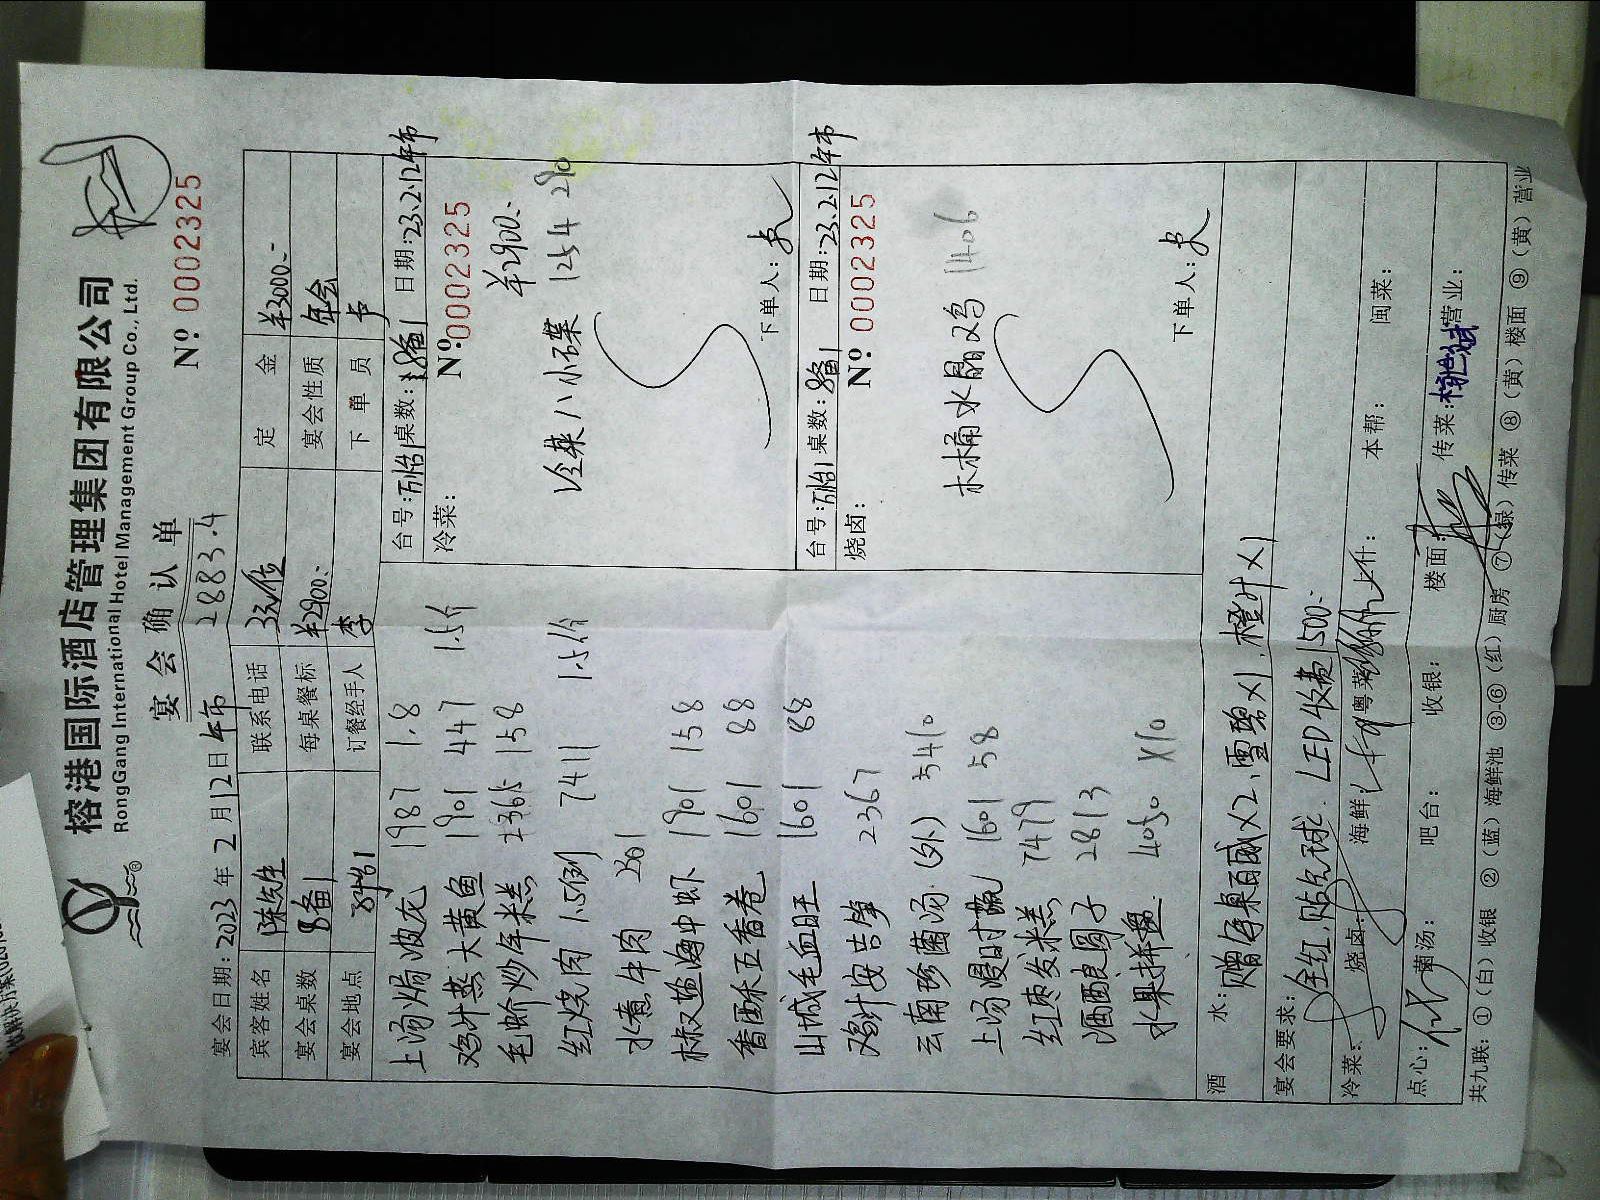 榕港国际酒店管理集团有限公司
RongGang International Hotel Management Group Co., Ltd.
宴会确认单
Nº 0002325
2883.4
宴会日期: 2023 年 2 月 12 日 午市
宾客姓名 陈先生 联系电话 定金 ¥3000-
宴会桌数 8备1 每桌餐标 ¥2900- 宴会性质 年会
宴会地点 订餐经手人 李 下单员 卢
上汤焗波龙 1987 1.8
鸡汁蒸大黄鱼 1901 447 1.5斤
毛蚧炒年糕 2365 158
红烧肉 1.5例 7411 1.5份
水煮牛肉 2601
椒盐海中虾 1901 158
香酥五香卷 1601 88
山城毛血旺 1601 88
鸡汁安吉笋 2367
云南珍菌汤 (外) 5410
上汤浸时蔬 1601 58
红枣发米糕 7479
酒酿圆子 2813
水果拼盘 4050 X10
台号: 桌数: 8备1 日期: 23.2.12午市
冷菜:
Nº: 0002325
¥2900-
冷菜八小碟 1254 290
下单人:
台号: 桌数: 8备1 日期: 23.2.12午市
烧卤:
Nº 0002325
木桶水晶鸡 1406
下单人:
酒水: 赠每桌百威X2、雪碧X1、橙汁X1
宴会要求: 全红, 贴气球. LED收费1500-
冷菜: 烧卤: 海鲜: 粤菜: 上什: 本帮: 闽菜:
点心: 葡汤: 吧台: 收银: 楼面: 传菜: 营业:
共九联: ①(白)收银 ②(蓝)海鲜池 ③-⑥(红)厨房 ⑦(绿)传菜 ⑧(黄)楼面 ⑨(黄)营业